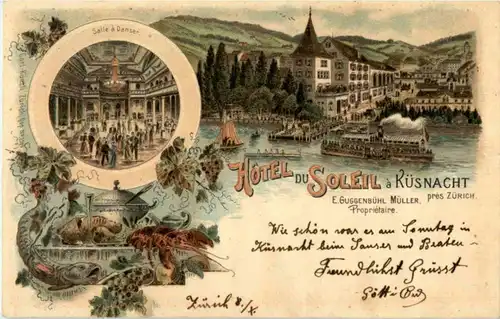 Salle à Danser
HÔTEL DU SOLEIL à KÜSNACHT
près ZÜRICH.
E. GUGGENBÜHL MÜLLER,
Propriétaire.
Wie schön war es am Sonntag in
Küsnacht beim Sauser und Braten.
Freundlichst Grüsst
Zürich 8/X